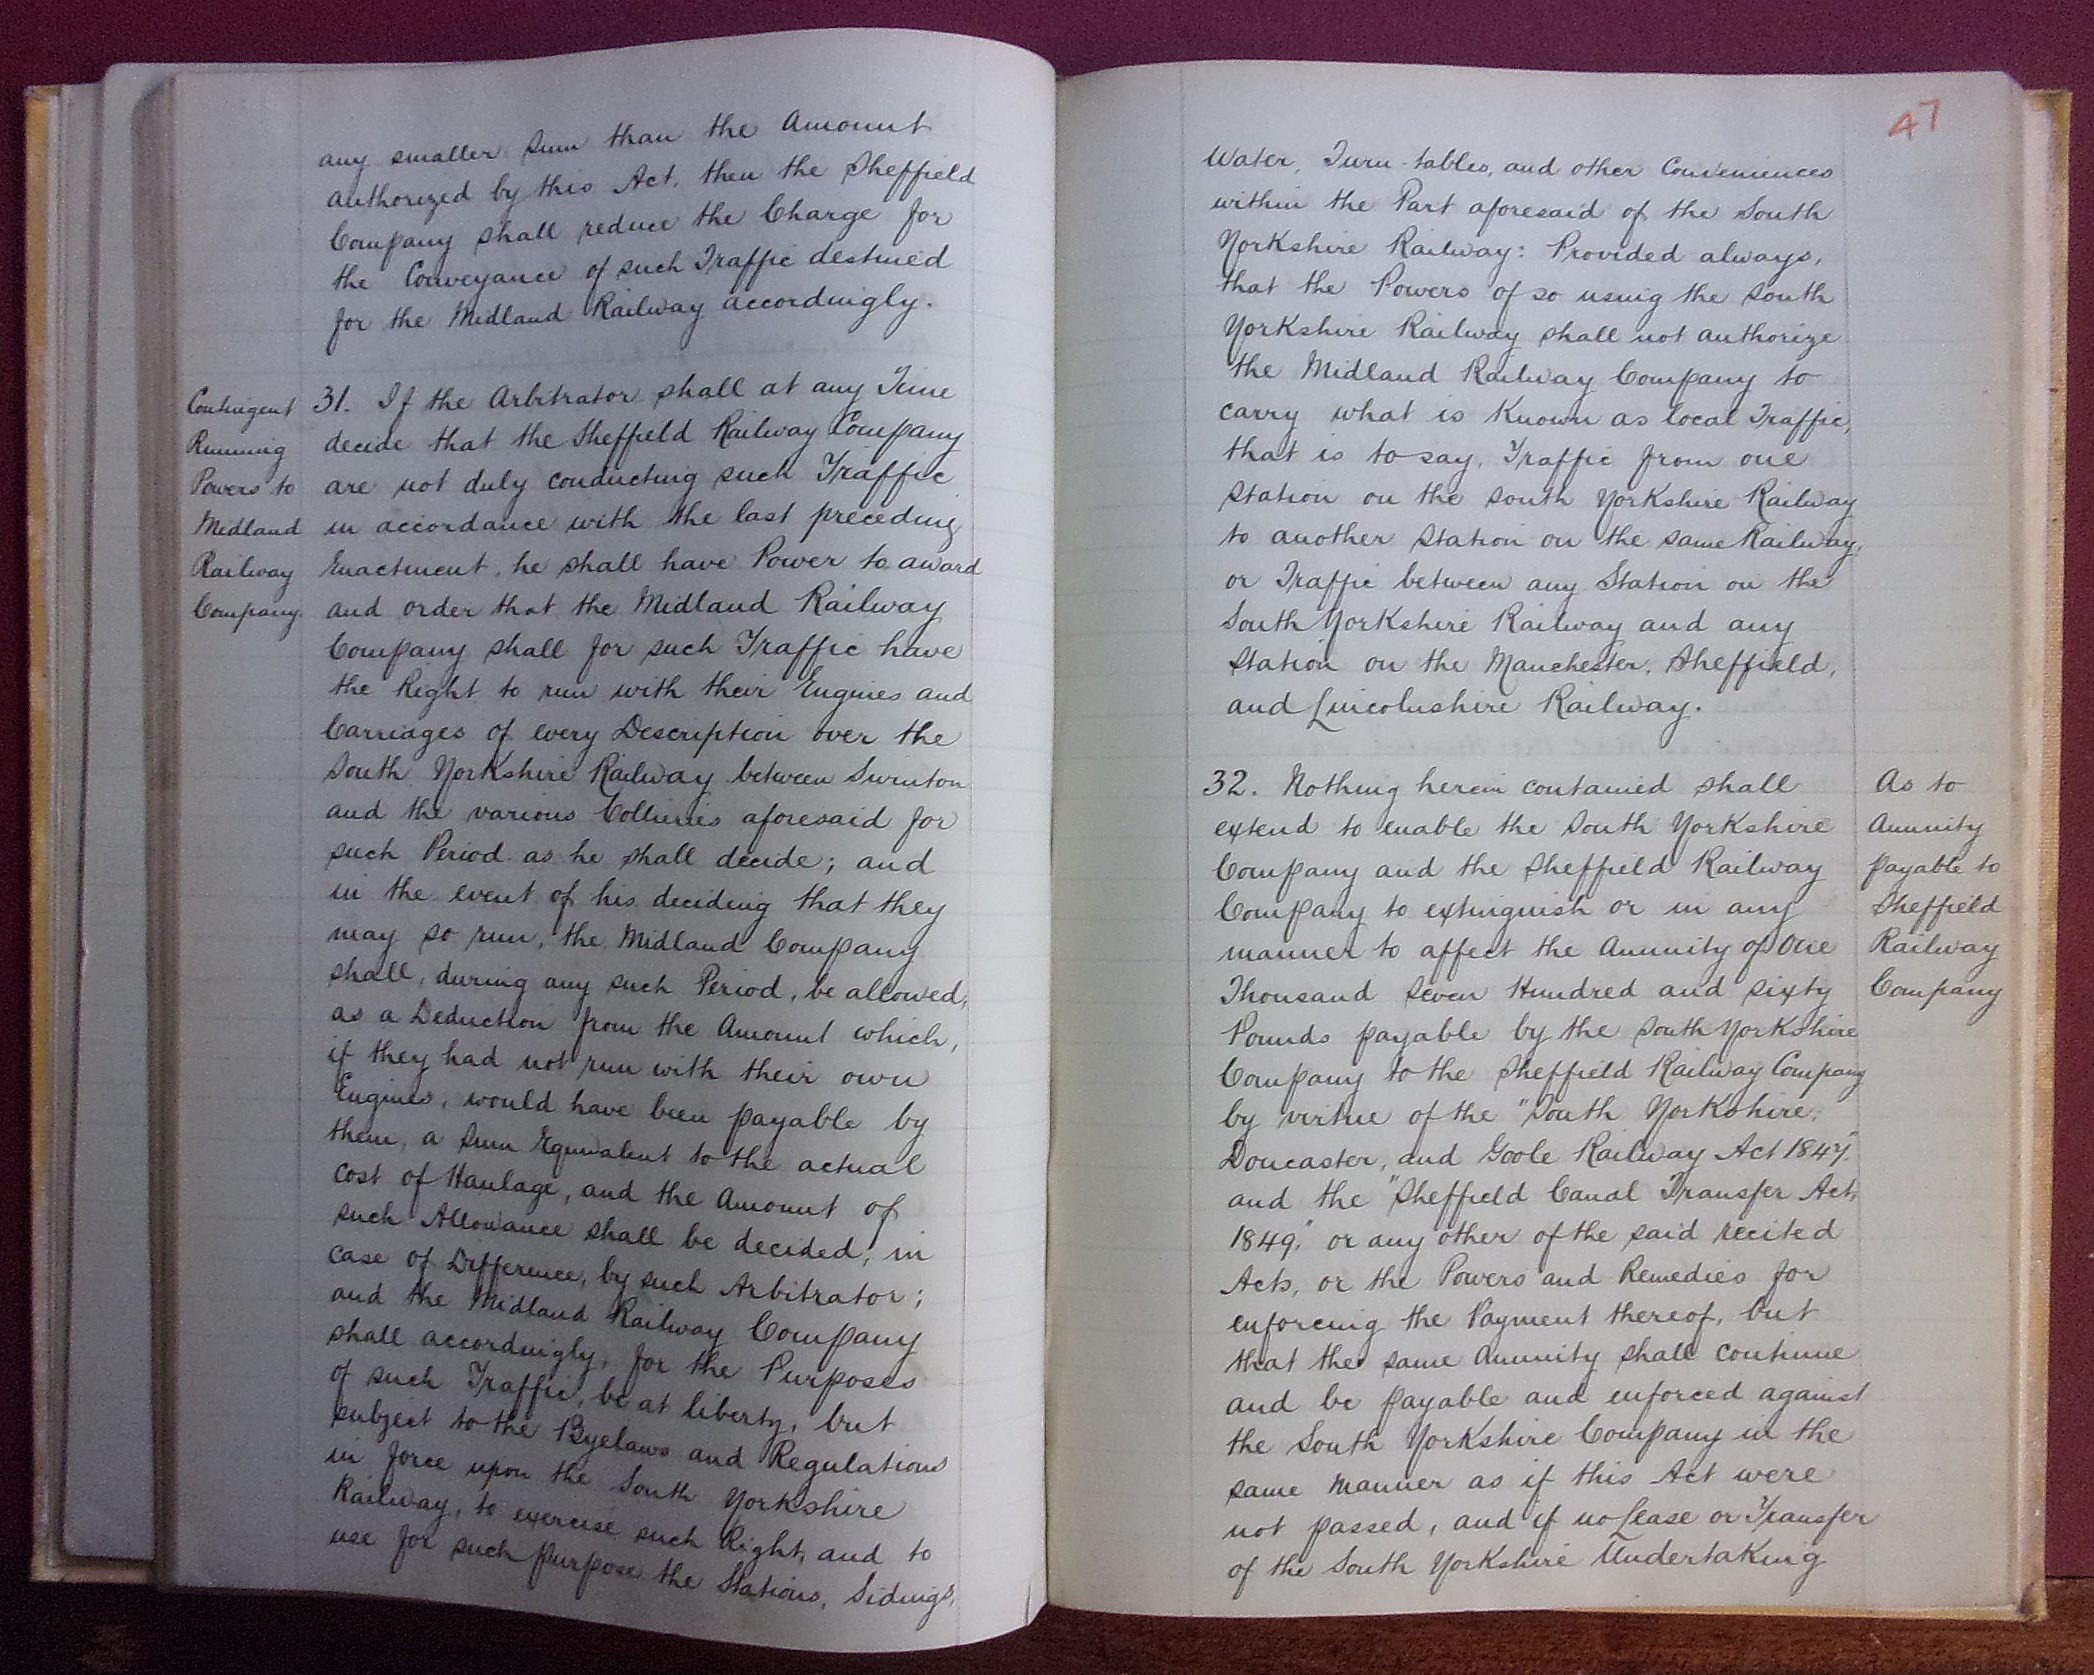 any smaller sum than the Amount
authorized by this Act, then the Sheffield
Company shall reduce the Charge for
the Conveyance of such Traffic destined
for the Midland Railway accordingly.
Contingent
Running
Powers to
Midland
Railway
Company.
31. If the Arbitrator shall at any Time
decide that the Sheffield Railway Company
are not duly conducting such Traffic
in accordance with the last preceding
Enactment, he shall have Power to award
and order that the Midland Railway
Company shall for such Traffic have
the Right to run with their Engines and
Carriages of every Description over the
South Yorkshire Railway between Swinton
and the various Collieries aforesaid for
such Period as he shall decide; and
in the event of his deciding that they
may so run, the Midland Company
shall, during any such Period, be allowed,
as a Deduction from the Amount which,
if they had not run with their own
Engines, would have been payable by
them, a sum Equivalent to the actual
cost of Haulage, and the Amount of
such Allowance shall be decided, in
case of Difference, by such Arbitrator;
and the Midland Railway Company
shall accordingly, for the Purposes
of such Traffic, be at liberty, but
subject to the Byelaws and Regulations
in force upon the South Yorkshire
Railway, to exercise such Right, and to
use for such purpose the Stations, Sidings,
47
Water, Turn-tables, and other Conveniences
within the Part aforesaid of the South
Yorkshire Railway: Provided always,
that the Powers of so using the South
Yorkshire Railway shall not authorize
the Midland Railway Company to
carry what is known as local Traffic,
that is to say, Traffic from one
Station on the South Yorkshire Railway
to another Station on the same Railway,
or Traffic between any Station on the
South Yorkshire Railway and any
Station on the Manchester, Sheffield,
and Lincolnshire Railway.
32. Nothing herein contained shall
extend to enable the South Yorkshire
Company and the Sheffield Railway
Company to extinguish or in any
manner to affect the Annuity of One
Thousand Seven Hundred and sixty
Pounds payable by the South Yorkshire
Company to the Sheffield Railway Company
by virtue of the "South Yorkshire,
Doncaster, and Goole Railway Act 1847."
and the "Sheffield Canal Transfer Act,
1849," or any other of the said recited
Acts, or the Powers and Remedies for
enforcing the Payment thereof, but
that the same Annuity shall continue
and be payable and enforced against
the South Yorkshire Company in the
same manner as if this Act were
not passed, and if no Lease or Transfer
of the South Yorkshire Undertaking
As to
Annuity
payable to
Sheffield
Railway
Company